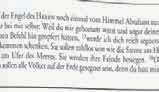 der Engel des HERRN noch einmal vom Himmel Abraham
bei mir selbst: Weil du mir gehorsam warst und sogar deine
en Befehl hin geopfert hätten, ¹⁷werde ich dich segnen
kommen schenken. Sie sollen zahllos sein wie die Sterne am H
am Ufer des Meeres. Sie werden ihre Feinde besiegen. ¹⁸D
sollen alle Völker auf der Erde gesegnet sein, denn du hast mi